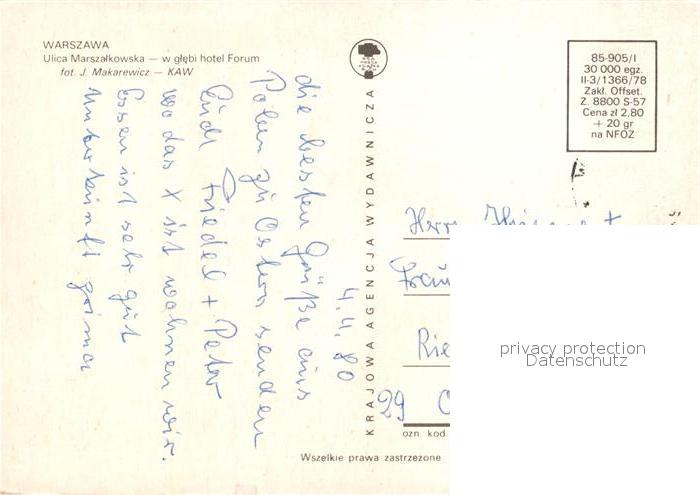 WARSZAWA
Ulica Marszałkowska — w głębi hotel Forum
fot. J. Makarewicz — KAW
4.4.80
die besten Grüße aus
Polen zu Ostern senden
Euch Friedel + Peter
wo das X ist wohnen wir.
Essen ist sehr gut
Unterkunft prima
KRAJOWA AGENCJA WYDAWNICZA
85-905/I
30 000 egz.
II-3/1366/78
Zakl. Offset.
Z. 8800 S-57
Cena zł 2,80
+ 20 gr
na NFOZ
Herrn
Frau
Rie
29 O
ozn kod
Wszelkie prawa zastrzeżone
privacy protection
Datenschutz